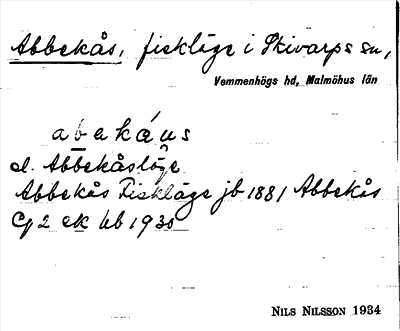 Abbekås, fiskläge i Skivarps sn,
Vemmenhögs hd, Malmöhus län
abekáus
el. Abbekåsläge
Abbekås Fiskläge jb 1881 Abbekås
Cg 2 ek hb 1930
NILS NILSSON 1934